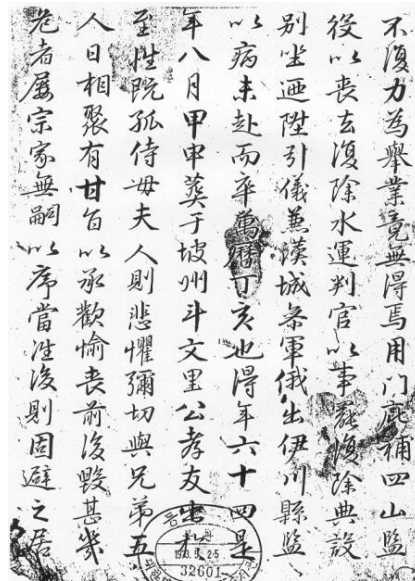 不復力為舉業竟無得焉用門庇補四山監
役以喪去復除水運判官以事罷復除典設
別坐遷陞引儀兼漢城叅軍俄出伊川縣監
以病未赴而卒萬曆丁亥也得年六十四是
年八月甲申葬于坡州斗文里公孝友出
至性旣孤侍毋夫人則悲懼彌切與兄弟五
人日相聚有甘旨以承歡愉喪前後毀甚幾
危者屢宗家無嗣以序當後則固避之居
32601